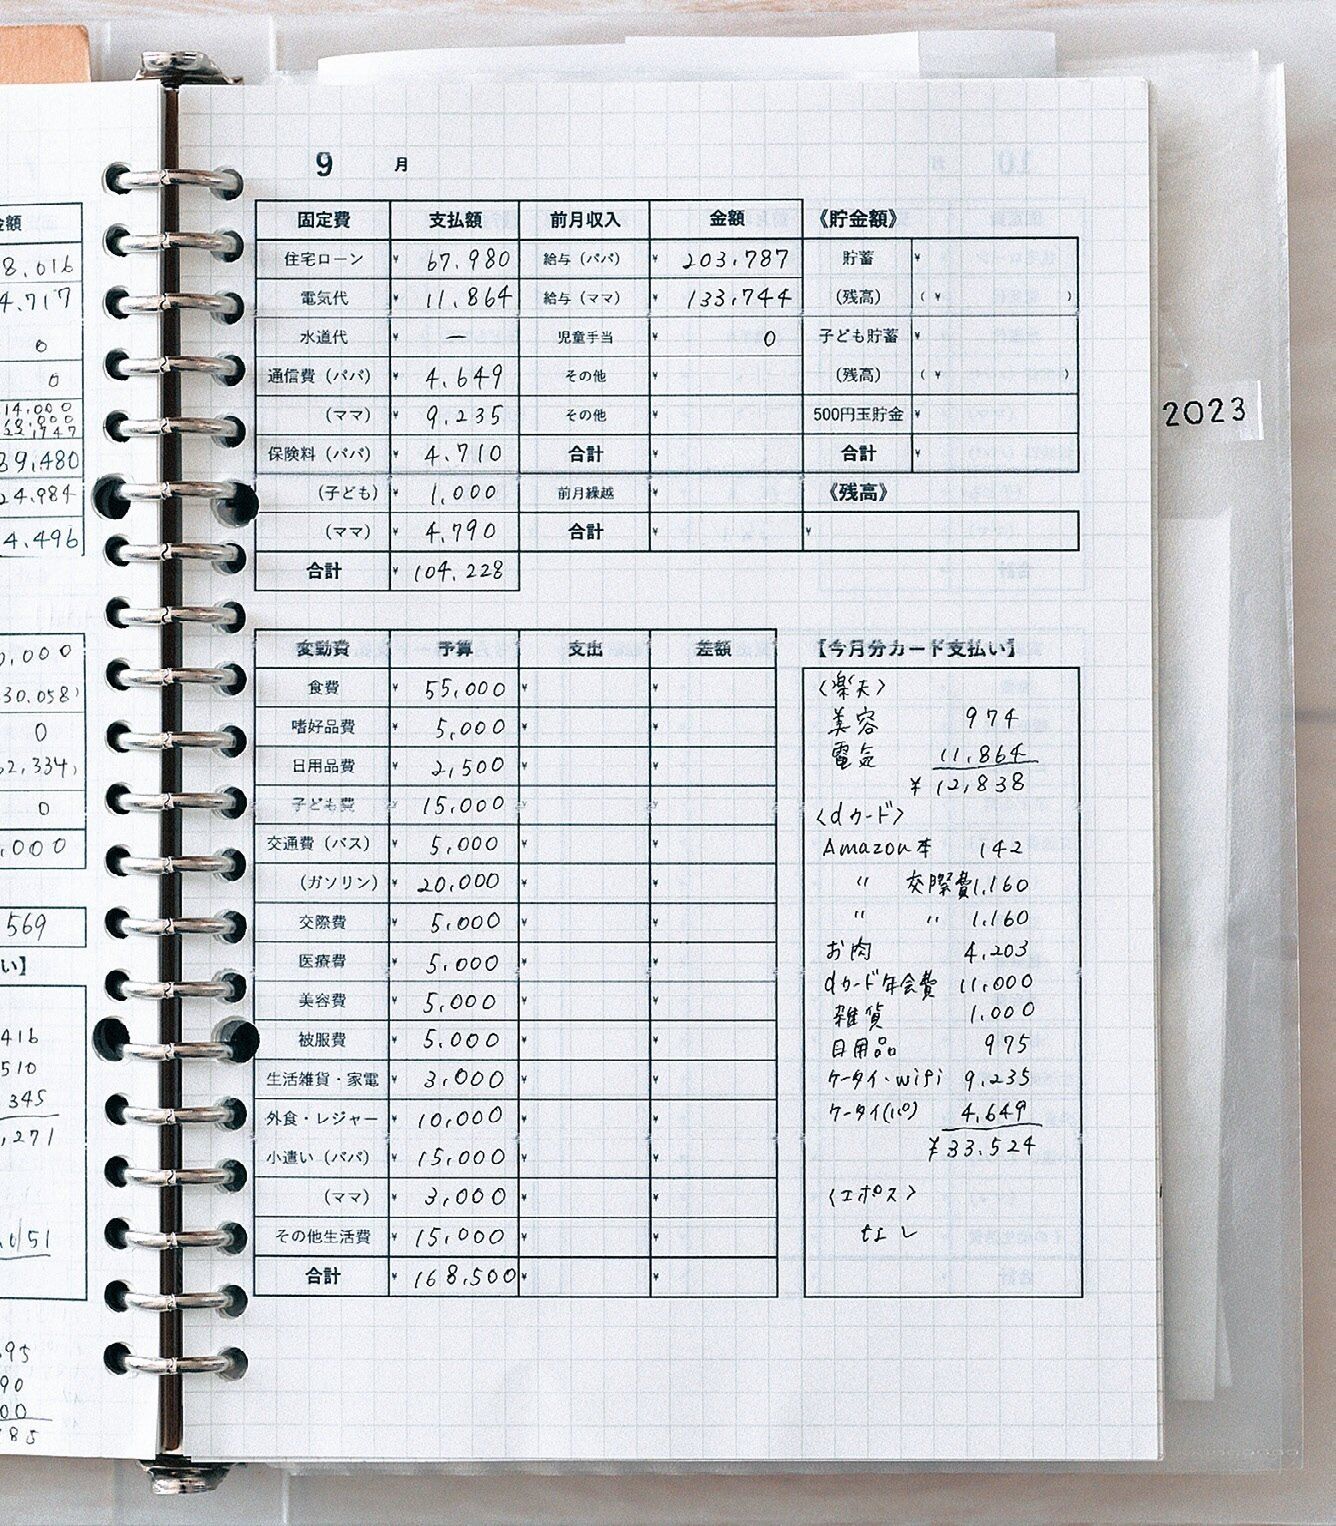 9 月
固定費 支払額 前月収入 金額 《貯金額》
住宅ローン ¥ 67,980 給与（パパ） ¥ 203,787 貯蓄 ¥
電気代 ¥ 11,864 給与（ママ） ¥ 133,744 （残高） （¥ ）
水道代 ¥ — 児童手当 ¥ 0 子ども貯蓄 ¥
通信費（パパ） ¥ 4,649 その他 ¥ （残高） （¥ ）
（ママ） ¥ 9,235 その他 ¥ 500円玉貯金 ¥
保険料（パパ） ¥ 4,710 合計 ¥ 合計 ¥
（子ども） ¥ 1,000 前月繰越 ¥ 《残高》
（ママ） ¥ 4,790 合計 ¥ ¥
合計 ¥ 104,228
変動費 予算 支出 差額
食費 ¥ 55,000 ¥ ¥
嗜好品費 ¥ 5,000 ¥ ¥
日用品費 ¥ 2,500 ¥ ¥
子ども費 ¥ 15,000 ¥ ¥
交通費（バス） ¥ 5,000 ¥ ¥
（ガソリン） ¥ 20,000 ¥ ¥
交際費 ¥ 5,000 ¥ ¥
医療費 ¥ 5,000 ¥ ¥
美容費 ¥ 5,000 ¥ ¥
被服費 ¥ 5,000 ¥ ¥
生活雑貨・家電 ¥ 3,000 ¥ ¥
外食・レジャー ¥ 10,000 ¥ ¥
小遣い（パパ） ¥ 15,000 ¥ ¥
（ママ） ¥ 3,000 ¥ ¥
その他生活費 ¥ 15,000 ¥ ¥
合計 ¥ 168,500 ¥ ¥
【今月分カード支払い】
〈楽天〉
美容 974
電気 11,864
¥ 12,838
〈dカード〉
Amazon本 142
〃 交際費 1,160
〃 〃 1,160
お肉 4,203
dカード年会費 11,000
雑貨 1,000
日用品 975
ケータイ・wifi 9,235
ケータイ(パパ) 4,649
¥33,524
〈エポス〉
なし
2023
金額
8,016
4,717
0
0
14,000
89,480
24,984
4,496
0,000
30,058)
0
62,334,
0
,000
569
い】
416
510
345
,271
,051
95
90
00
85